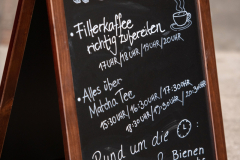 • Filterkaffee
richtig zubereiten
17UHR/18UHR/19UHR/20UHR
• Alles über
Matcha Tee
15:30UHR/16:30UHR/17:30UHR
18:30UHR/19:30UHR/20:30UHR
Rund um die
Bienen